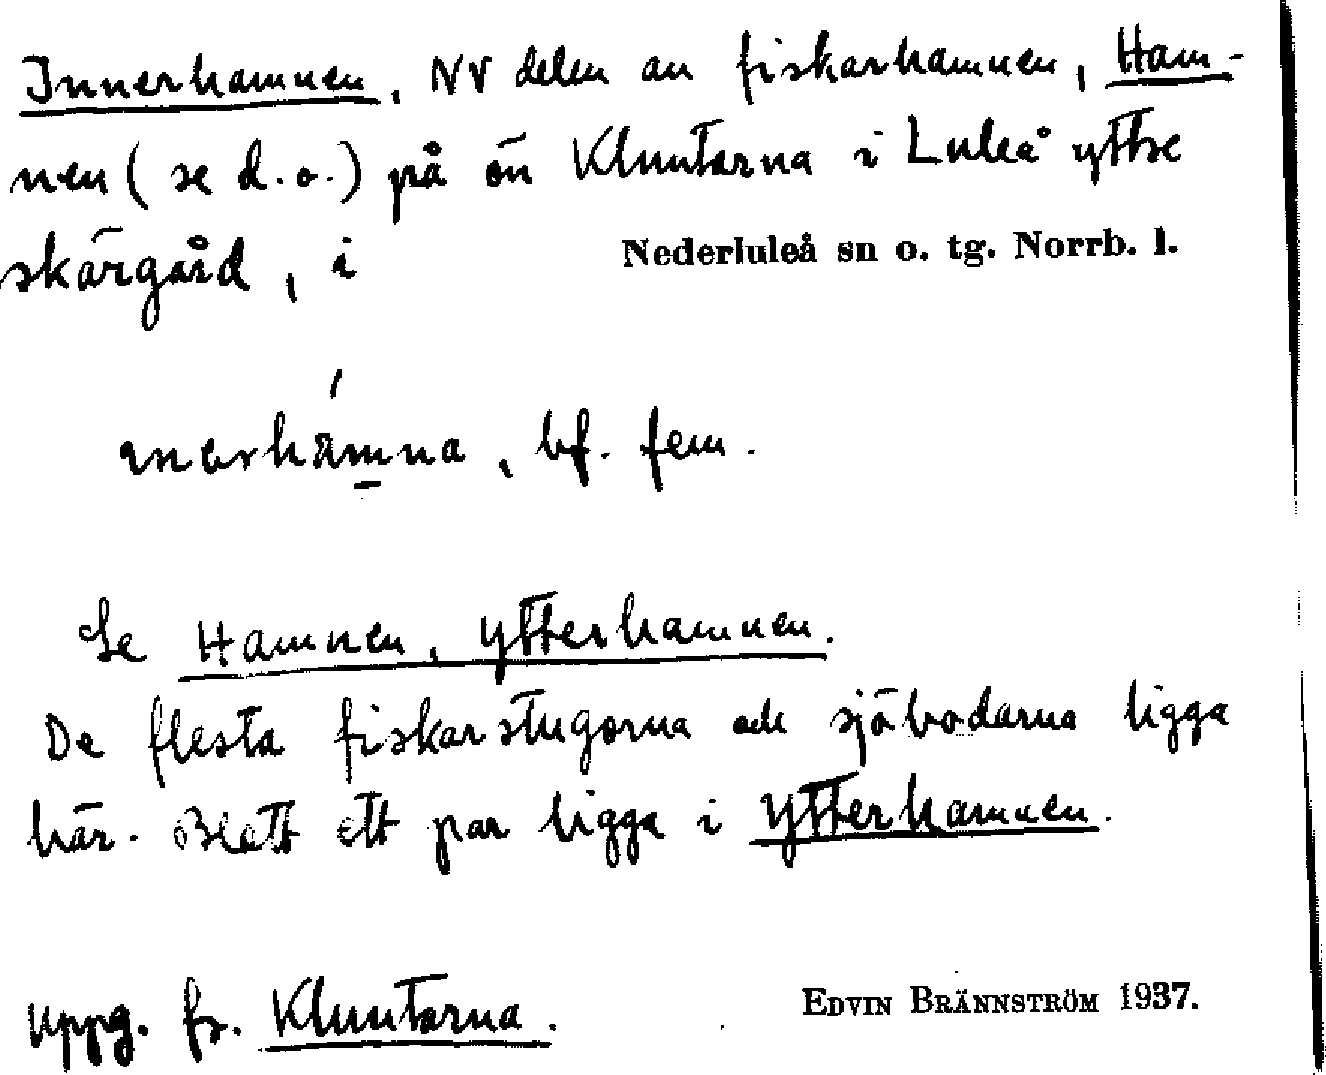 Innerhamnen, NV delen av fiskarhamnen, Ham-
nen (se d.o.) på ön Kluntarna i Luleå yttre
skärgård, i Nederluleå sn o. tg. Norrb. l.
bf. fem.
Se Hamnen, Ytterhamnen.
De flesta fiskarstugorna och sjöbodarna ligga
här. Blott ett par ligga i Ytterhamnen.
Uppg. fr. Kluntarna. EDVIN BRÄNNSTRÖM 1937.